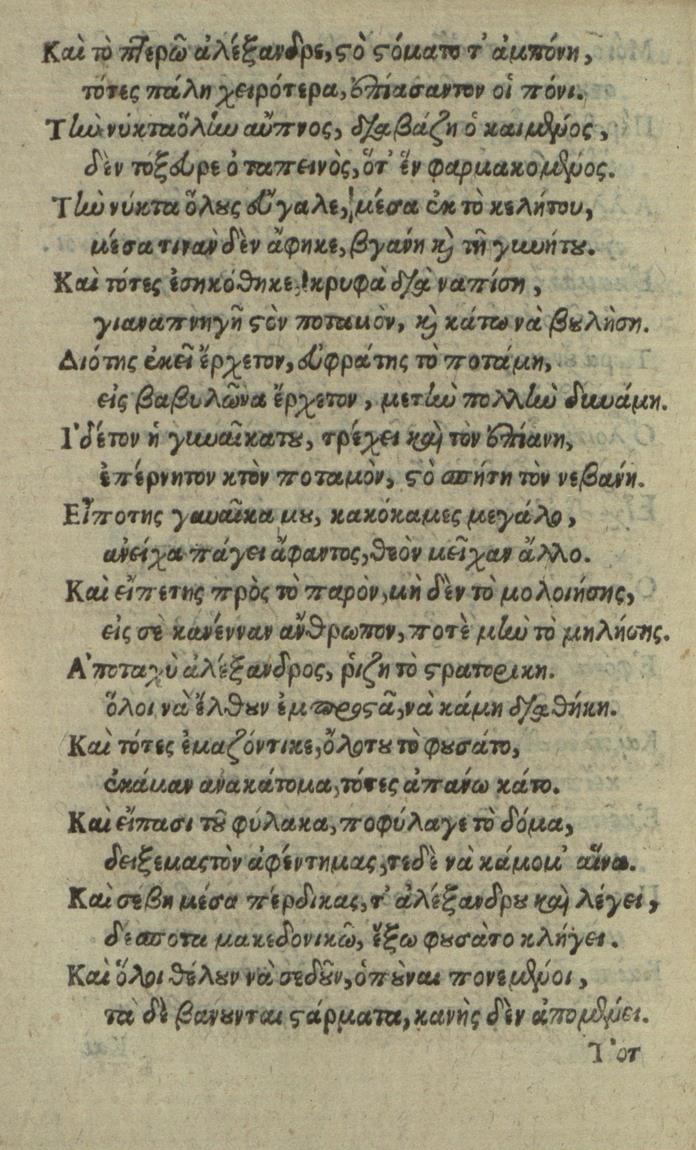 Καὶ τὸ πτερῶ ἀλέξανδρε, ϛὸ ϛόματο τ' ἀμπόνη,
τότες πάλη χειρότερα, ἐπίασαντον οἱ πόνι.
Τὴν νύκτα ὅλην αὔπνος, διαβάζη ὁ καιμένος,
δὲν τοξεύρε ὁ ταπεινὸς, ὅτ' ἔν φαρμακομένος.
Τὴν νύκτα ὅλους εὔγαλε, μέσα ἐκ τὸ κελήτου,
μέσα τιναν δὲν ἄφηκε, βγανή κὶ τῆ γυνήτου.
Καὶ τότες ἐσηκόθηκε, κρυφὰ διὰ ναπίση,
γιαναπνηγῆ ϛὸν ποταμὸν, κὶ κάτω νὰ βουλήση.
Διότης ἐκεῖ ἔρχετον, εὐφράτης τὸ ποτάμη,
εἰς βαβυλῶνα ἔρχετον, μετὴν πολλὴν δυνάμη.
Ἰδέτον ἡ γυναῖκατου, τρέχει καὶ τὸν ἐπίανη,
ἐπέρνητον κτὸν ποταμὸν, ϛὸ σπήτη τὸν νεβανή.
Εἶποτης γυναῖκα μου, κακόκαμες μεγάλο,
ανείχα πάγει ἄφαντος, θεὸν μεῖχαν ἄλλο.
Καὶ εἶπετης πρὸς τὸ παρὸν, μὴ δὲν τὸ μολοιήσης,
εἰς σὲ κανένναν ἄνθρωπον, ποτὲ μὴν τὸ μηλήσης.
Ἀποταχὺ ἀλέξανδρος, ῥιζη τὸ ϛρατορικη.
ὅλοι νὰ ἔλθουν ἐμπροϛᾶ, νὰ κάμη διαθήκη.
Καὶ τότες ἐμαζόντικε, ὅλοτου τὸ φυσάτο,
ἐκάμαν ανακάτομα, τότες ἀπάνω κάτο.
Καὶ εἴπασι τοῦ φύλακα, ποφύλαγε τὸ δόμα,
δειξεμαςτὸν ἀφέντημας, τεδὲ νὰ κάμομ' αἷνα.
Καὶ σέβη μέσα πέρδικας, τ' ἀλέξανδρου καὶ λέγει,
δεσποτα μακεδονικῶ, ἔξω φυσάτο κλήγει.
Καὶ ὅλοι θέλουν νὰ σεδοῦν, ὁποῦναι πονεμένοι,
τὰ δὲ βανουνται ϛάρματα, κανὴς δὲν ἀπομένει.
Τότ